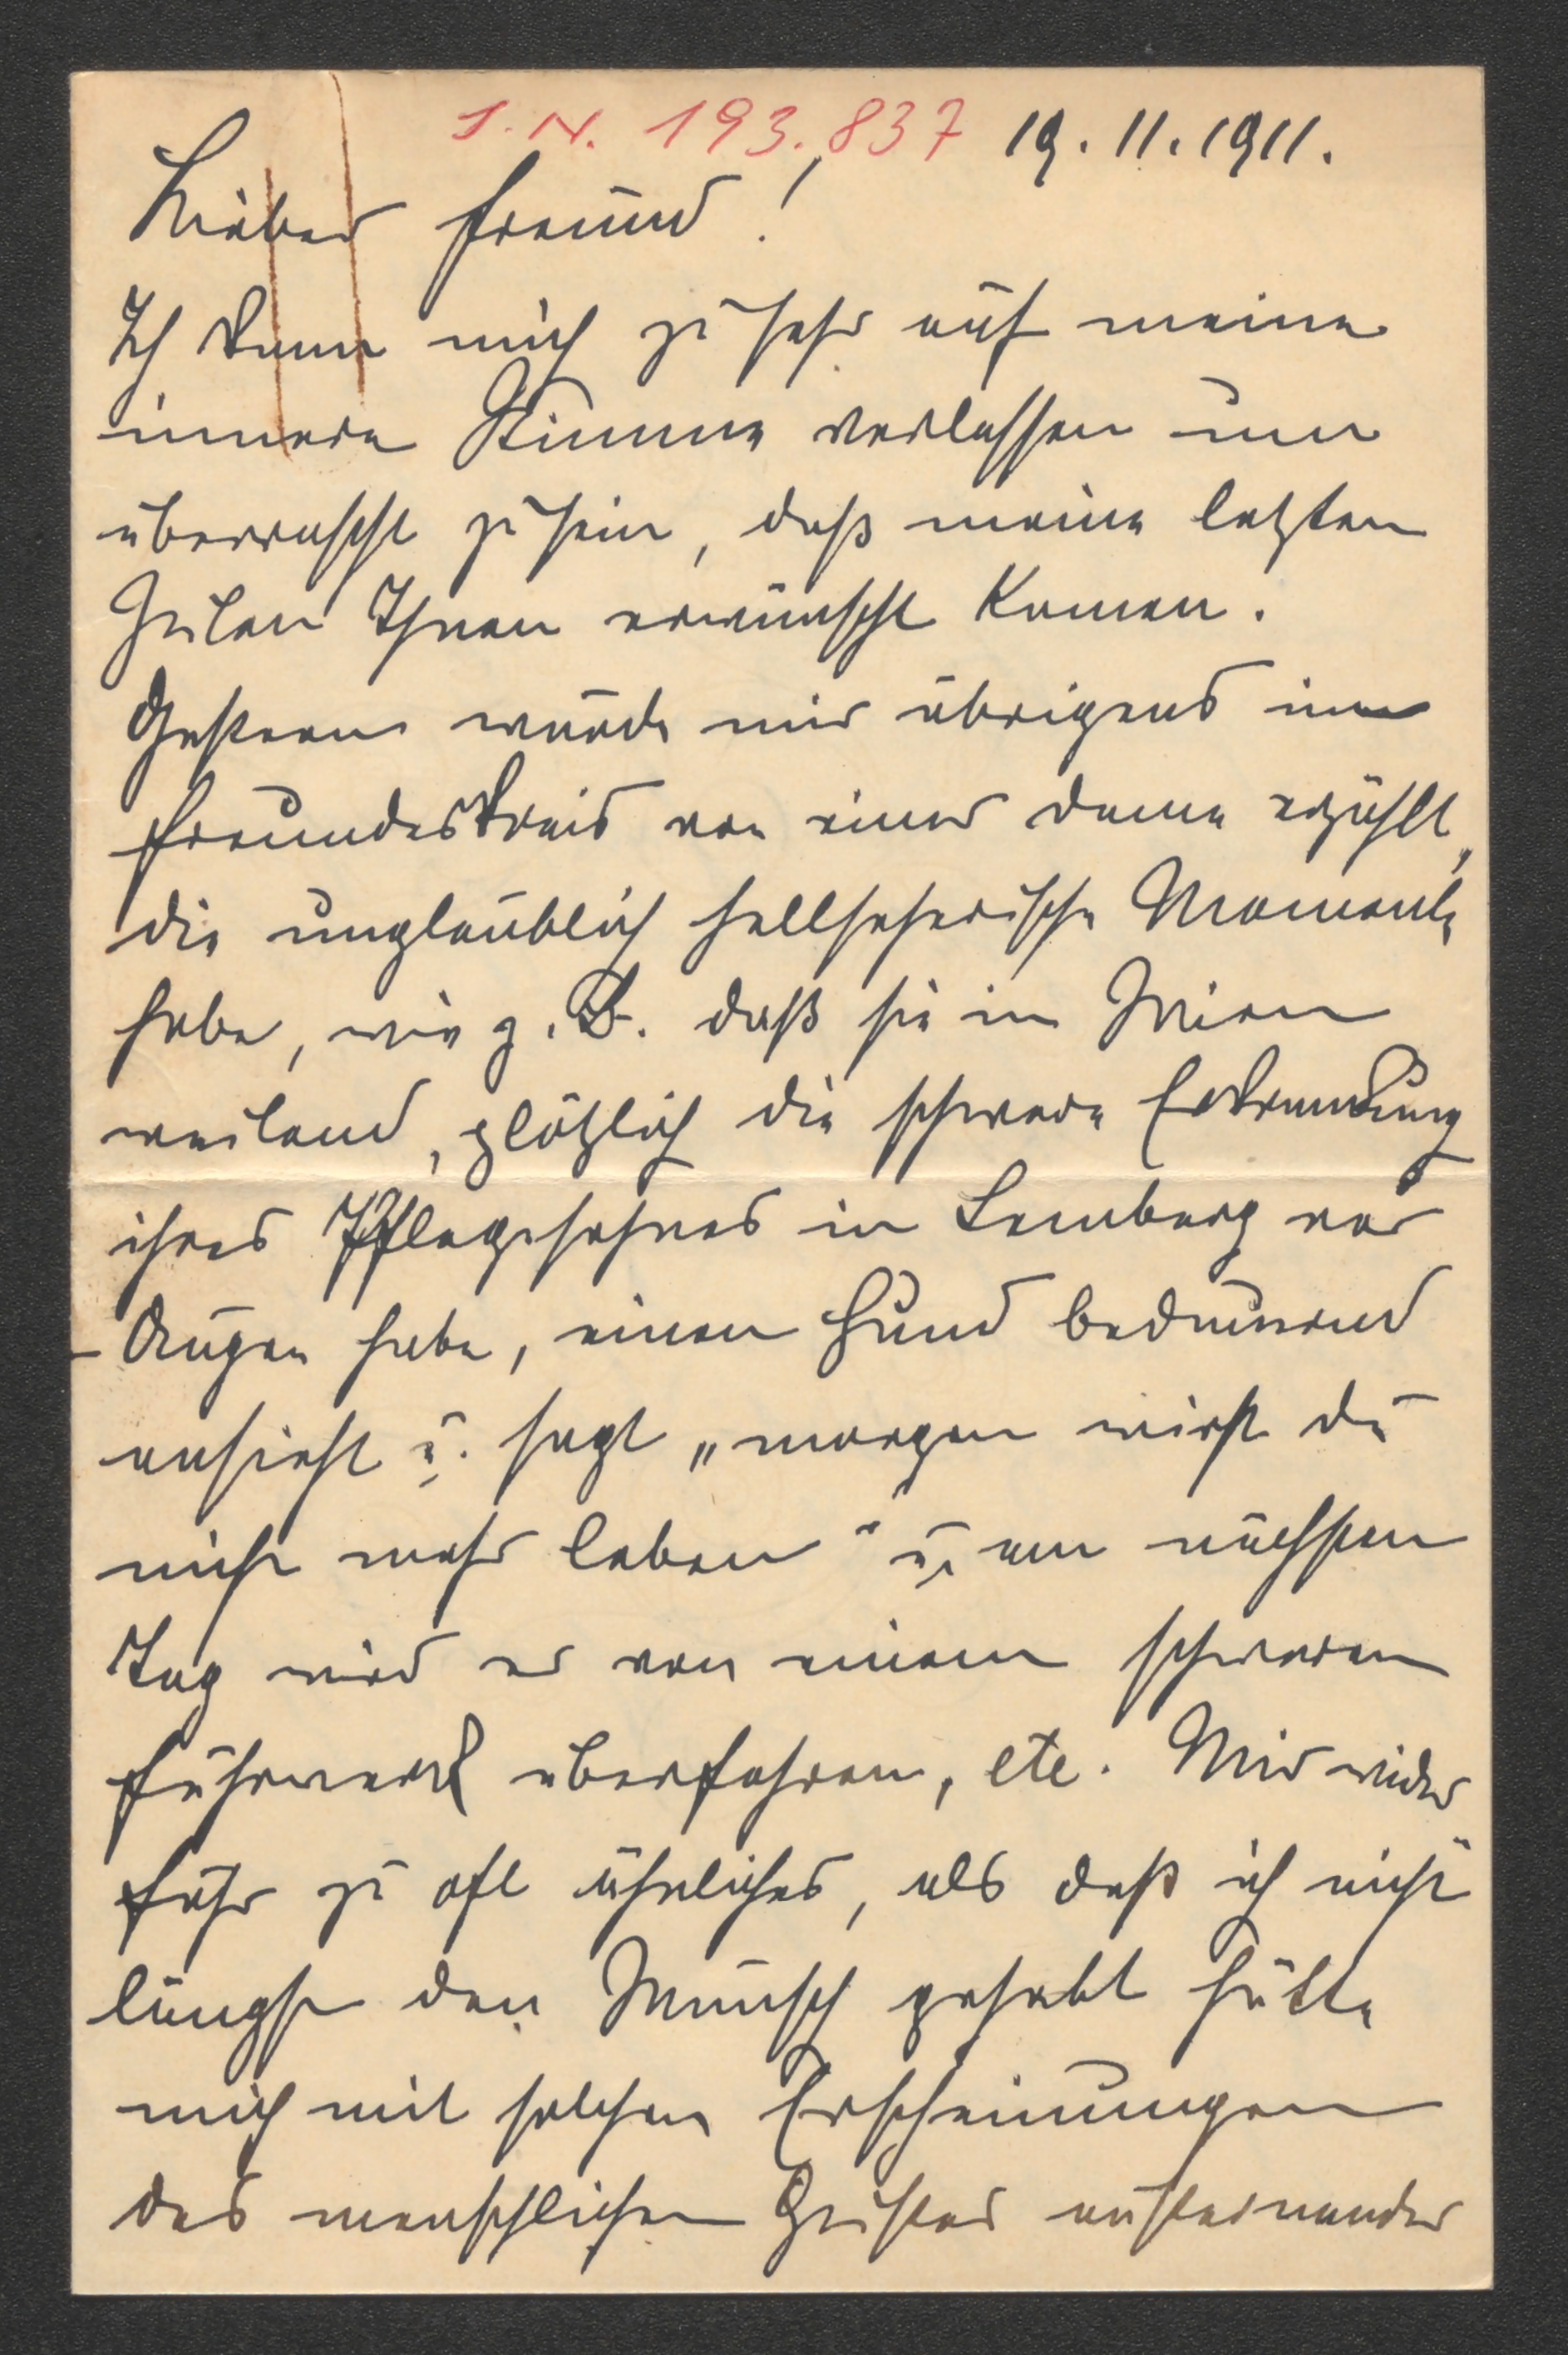 I.N. 193.837 19.11.1911.
Lieber Freund!
Ich kann mich zu sehr auf meine
innere Stimme verlassen um
überrascht zu sein, daß meine letzten
Zeilen Ihnen erwünscht kamen.
Gestern wurde mir übrigens im
Freundeskreis von einer Dame erzählt,
die unglaublich hellseherische Momente
habe, wie z.B. daß sie in Wien
weilend, plötzlich die schwere Erkrankung
ihres Pflegesohnes in Lemberg vor
Augen habe, einen Hund bedauernd
ansieht u. sagt „morgen wirst du
nicht mehr leben" u. am nächsten
Tag wird er von einem schweren
Fuhrwerk überfahren, etc. Mir wider
fuhr zu oft ähnliches, als daß ich nicht
längst den Wunsch gehabt hätte
mich mit solchen Erscheinungen
des menschlichen Geistes auseinander